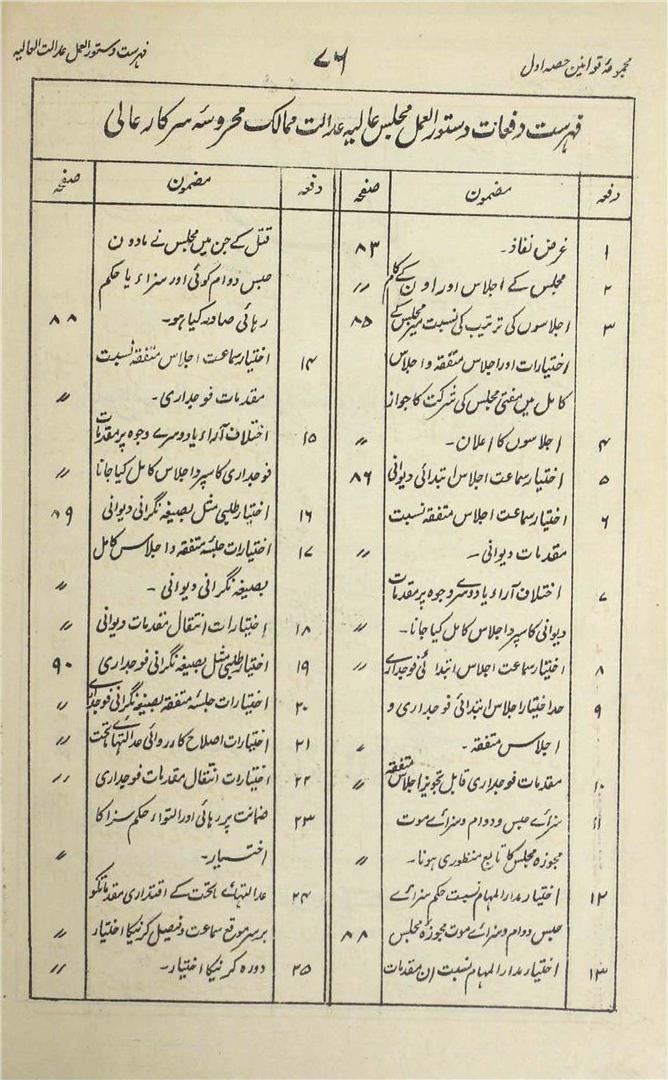 مجموعۂ قوانین حصہ اول
۷۶
فہرست دستور العمل عدالت العالیہ
فہرست دفعات دستور العمل مجلس عالیہ عدالت ممالک محروسۂ سرکار عالی
دفعہ مضمون صفحہ
۱ غرض نفاذ۔ ۸۳
۲ مجلس کے اجلاس اور اون کے کام 〃
۳ اجلاسوں کی ترتیب کی نسبت میر مجلس کے ۸۵
اختیارات اور اجلاس متفقہ و اجلاس
کامل میں مفتی مجلس کی شرکت کا جواز
۴ اجلاسوں کا اعلان۔ 〃
۵ اختیار سماعت اجلاس ابتدائی دیوانی ۸۶
۶ اختیار سماعت اجلاس متفقہ نسبت
مقدمات دیوانی۔ 〃
۷ اختلاف آراء یا دوسرے وجوہ پر مقدمات
دیوانی کا سپرد اجلاس کامل کیا جانا۔ 〃
۸ اختیار سماعت اجلاس ابتدائی فوجداری 〃
۹ حد اختیار اجلاس ابتدائی فوجداری و
اجلاس متفقہ۔ 〃
۱۰ مقدمات فوجداری قابل تجویز اجلاس متفقہ 〃
۱۱ سزائے حبس و دوام و سزائے موت
مجوزہ مجلس کا تابع منظوری ہونا۔ 〃
۱۲ اختیار مدار المہام نسبت حکم سزائے
حبس دوام و سزائے موت مجوزہ مجلس ۸۸
۱۳ اختیار مدار المہام نسبت ان مقدمات
دفعہ مضمون صفحہ
قتل کے جن میں مجلس نے مادون
حبس دوام کوئی اور سزاء یا حکم
رہائی صادر کیا ہو۔ ۸۸
۱۴ اختیار سماعت اجلاس متفقہ نسبت
مقدمات فوجداری۔ 〃
۱۵ اختلاف آراء یا دوسرے وجوہ پر مقدمات
فوجداری کا سپرد اجلاس کامل کیا جانا 〃
۱۶ اختیار طلبی مثل بصیغہ نگرانی دیوانی ۸۹
۱۷ اختیارات جلسۂ متفقہ و اجلاس کامل
بصیغہ نگرانی دیوانی۔ 〃
۱۸ اختیارات انتقال مقدمات دیوانی 〃
۱۹ اختیار طلبی مثل بصیغہ نگرانی فوجداری ۹۰
۲۰ اختیارات جلسۂ متفقہ بصیغہ نگرانی فوجداری 〃
۲۱ اختیارات اصلاح کارروائی عدالتہائے تحت 〃
۲۲ اختیارات انتقال مقدمات فوجداری 〃
۲۳ ضمانت پر رہائی اور التواء حکم سزا کا
اختیار۔ 〃
۲۴ عدالتہائے ماتحت کے اقتداری مقدماتکو
برسر موقع سماعت و فیصل کرنیکا اختیار 〃
۲۵ دورہ کرنیکا اختیار۔ 〃